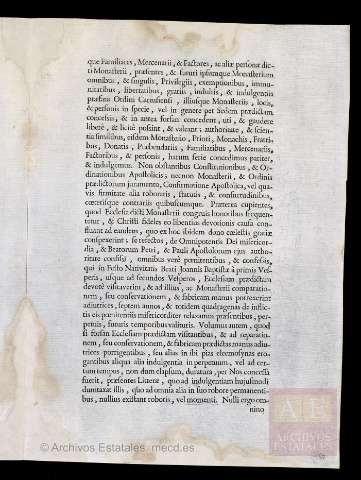 que Familiares, Mercenarii, & Factores, ac aliæ personæ dic-
ti Monasterii, præsentes, & futuri ipsumque Monasterium
omnibus, & singulis, Privilegiis, exemptionibus, immu-
nitatibus, libertatibus, gratiis, indultis, & indulgentiis
præfato Ordini Cartusiensi, illiusque Monasteriis, locis,
& personis in specie, vel in genere per Sedem prædictam
concessis, & in antea forsan concedens, uti, & gaudere
libere, & licite possint, & valeant: authoritate, & scien-
tia similibus, eisdem Monasterio, Priori, Monachis, Fratri-
bus, Donatis, Præbendariis, Familiaribus, Mercenariis,
Factoribus, & personis, harum serie concedimus pariter,
& indulgemus. Non obstantibus Constitutionibus, & Or-
dinationibus Apostolicis; necnon Monasterii, & Ordinis
prædictorum juramento, Confirmatione Apostolica, vel qua-
vis firmitate alia roboratis, statutis, & consuetudinibus,
cæterisque contrariis quibuscumque. Præterea cupientes,
quod Ecclesia dicti Monasterii congruis honoribus frequen-
tetur, & Christi fideles eo libentius devotionis causa con-
fluant ad eandem, quo ex hoc ibidem dono cælestis gratiæ
conspexerint, se refectos, de Omnipotentis Dei misericor-
dia, & Beatorum Petri, & Pauli Apostolorum ejus autho-
ritate confisi, omnibus vere pœnitentibus, & confessis,
qui in Festo Nativitatis Beati Joannis Baptistæ à primis Ves-
peris, usque ad secundos Vesperos, Ecclesiam prædictam
devote visitaverint, & ad illius, ac Monasterii comparatio-
nem, seu conservationem, & fabricam manus porrexerint
adjutrices, septem annos, & totidem quadragenas de inflic-
tis eis pœnitentiis misericorditer relaxamus præsentibus, per-
petuis, futuris temporibus valituris. Volumus autem, quod
si forsan Ecclesiam prædictam visitantibus, & ad reparatio-
nem, seu conservationem, & fabricam prædictas manus adju-
trices porrigentibus, seu alias in ibi pias eleemosynas ero-
gantibus aliqua alia indulgentia in perpetuum, vel ad cer-
tum tempus, non dum elapsum, duratura, per Nos concessa
fuerit, præsentes Litteræ, quo ad indulgentiam hujusmodi
dumtaxat illis, quo ad omnia alia in suo robore permanenti-
bus, nullius existant roboris, vel momenti. Nulli ergo om-
nino
© Archivos Estatales · mecd.es
ARCHIVOS
ESTATALES